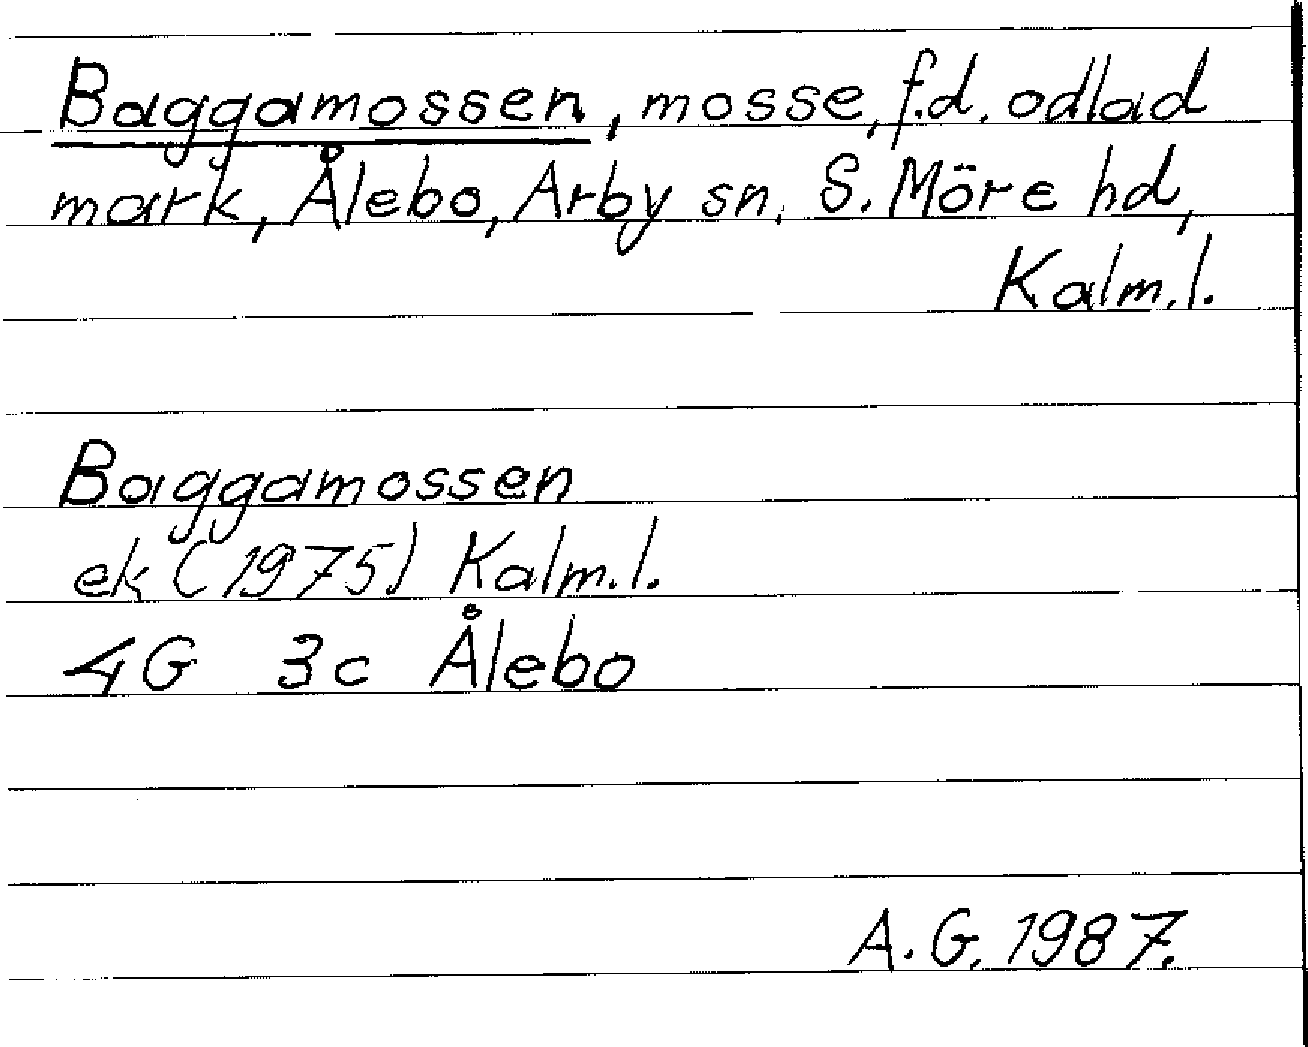 Baggamossen, mosse, f.d. odlad
mark, Ålebo, Arby sn. S. Möre hd,
Kalm.l.
Baggamossen
ek (1975) Kalm.l.
4G 3c Ålebo
A.G. 1987.